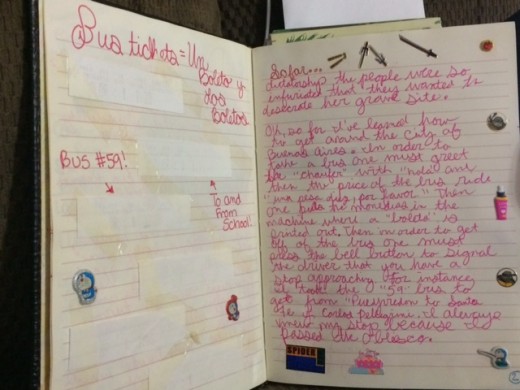 Bus tickets = Un
Boleto y
Los
Boletos
BUS #59!
To and
From
School!
So far...
dictatorship the people were so
infuriated that they wanted to
desecrate her grave site.
Oh, so far I've learned how
to get around the City of
Buenos Aires. In order to
take a bus one must greet
the "chaufer" with "hola" and
then the price of the bus ride
"una peso diez, por favor." Then
one puts the monedies in the
machine where a "boleto" is
printed out. Then in order to get
off of the bus one must
press the bell button to signal
the driver that you have a
stop approaching. For instance,
I took the "59" bus to
get from "Pueyrredon to Santa
Fe y Carlos Pellegrini. I always
knew my stop because I
passed the Obelisco.
SPIDER